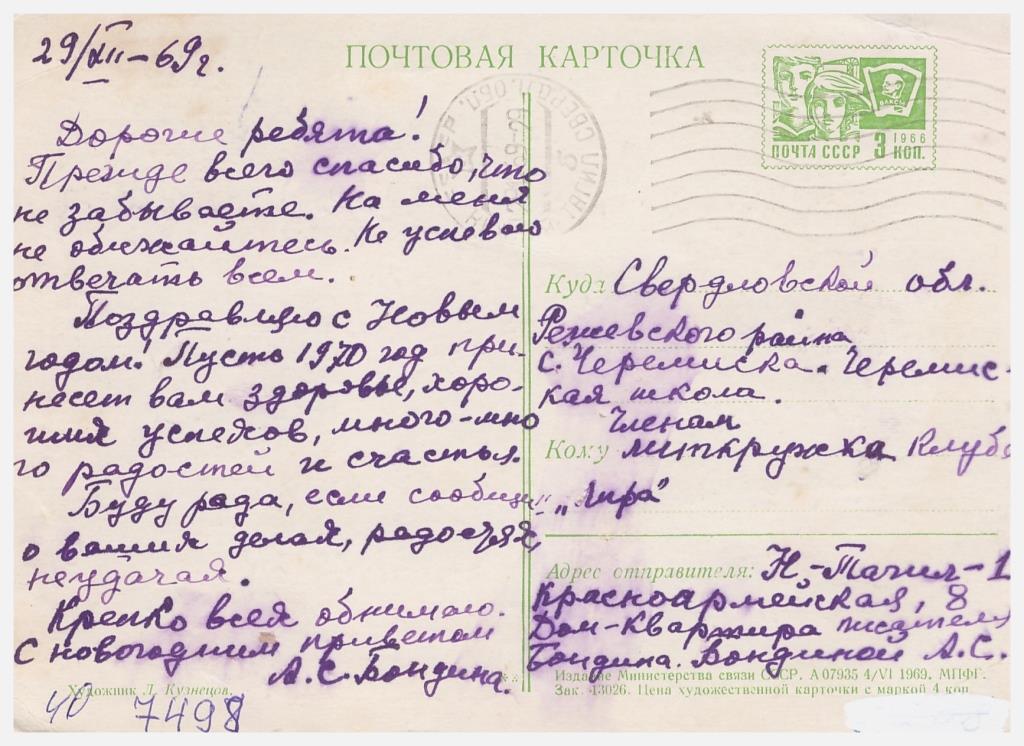 29/XII-69г.
Дорогие ребята!
Прежде всего спасибо, что
не забываете. На меня
не обижайтесь. Не успеваю
отвечать всем.
Поздравляю с Новым
годом! Пусть 1970 год при-
несет вам здоровье, хоро-
ших успехов, много-мно
го радостей и счастья.
Буду рада, если сообщи
о ваших делах, радостях,
неудачах.
Крепко всех обнимаю.
С новогодним приветом
А.С. Бондина.
Художник Л. Кузнецов.
40 7498
ПОЧТОВАЯ КАРТОЧКА
ВЛКСМ
1966
ПОЧТА СССР 3 КОП.
СВЕРДЛ. ОБЛ.
Куда Свердловской обл.
Режевского района
с. Черемиска. Черемис-
кая школа.
Членам
Кому литкружка клуба
"Лира"
Адрес отправителя: Н.-Тагил-1
Красноармейская, 8
Дом-квартира писателя
Бондина. Бондиной А.С.
Издание Министерства связи СССР. А 07935 4/VI 1969. МПФГ.
Зак. 13026. Цена художественной карточки с маркой 4 коп.